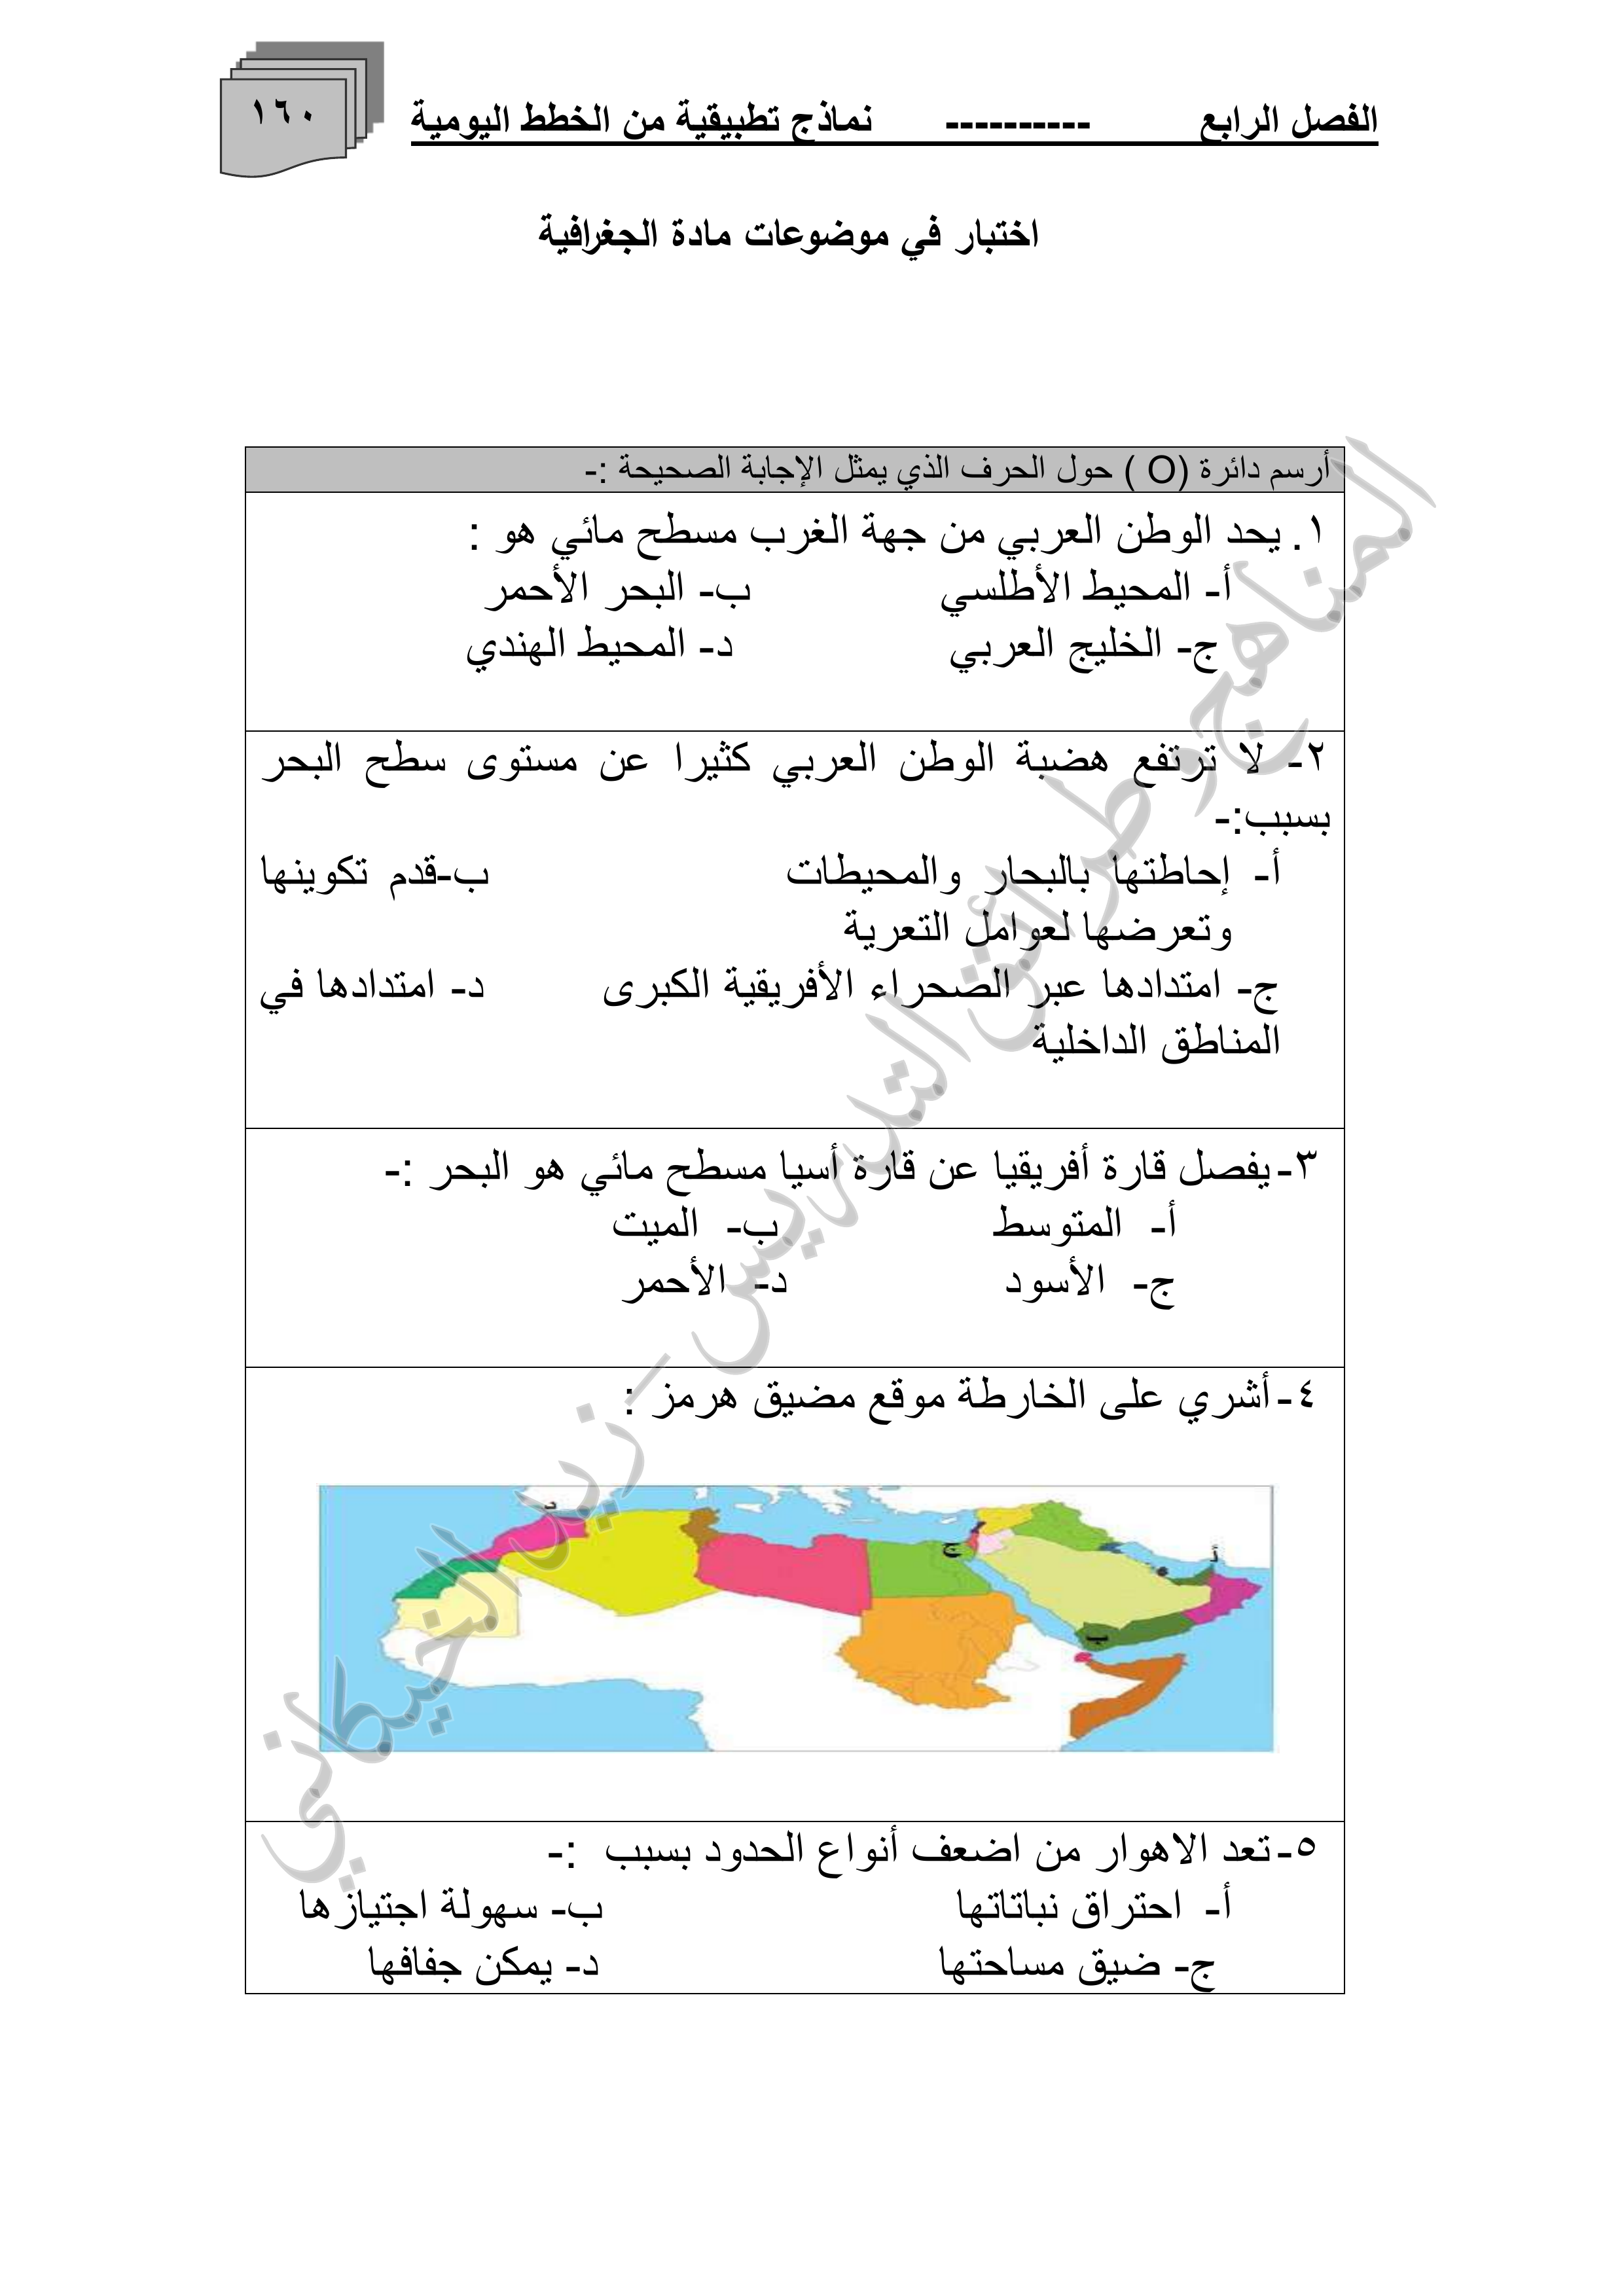 الفصل الرابع ---------- نماذج تطبيقية من الخطط اليومية
١٦٠
اختبار في موضوعات مادة الجغرافية
أرسم دائرة (O ) حول الحرف الذي يمثل الإجابة الصحيحة :-
١. يحد الوطن العربي من جهة الغرب مسطح مائي هو :
أ- المحيط الأطلسي ب- البحر الأحمر
ج- الخليج العربي د- المحيط الهندي
٢- لا ترتفع هضبة الوطن العربي كثيرا عن مستوى سطح البحر
بسبب:-
أ- إحاطتها بالبحار والمحيطات ب-قدم تكوينها
وتعرضها لعوامل التعرية
ج- امتدادها عبر الصحراء الأفريقية الكبرى د- امتدادها في
المناطق الداخلية
٣- يفصل قارة أفريقيا عن قارة أسيا مسطح مائي هو البحر :-
أ- المتوسط ب- الميت
ج- الأسود د- الأحمر
٤- أشري على الخارطة موقع مضيق هرمز :
د
ج
أ
ب
٥- تعد الاهوار من اضعف أنواع الحدود بسبب :-
أ- احتراق نباتاتها ب- سهولة اجتيازها
ج- ضيق مساحتها د- يمكن جفافها
المناهج وطرائق التدريس - زيد الخيكاني